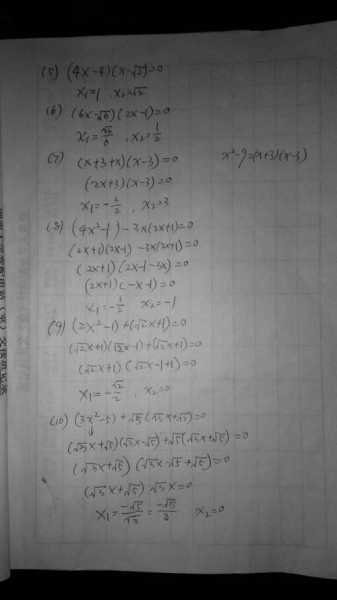 (5) (4x-4)(x-√2)=0
x₁=1 x₂=√2
(6) (6x-√5)(2x-1)=0
x₁=√5/6 , x₂=1/2
(7) (x+3+x)(x-3)=0
x²-9=(x+3)(x-3)
(2x+3)(x-3)=0
x₁=-3/2 , x₂=3
(8) (4x²-1)-3x(2x+1)=0
(2x+1)(2x-1)-3x(2x+1)=0
(2x+1)(2x-1-3x)=0
(2x+1)(-x-1)=0
x₁=-1/2 x₂=-1
(9) (2x²-1)+(√2x+1)=0
(√2x+1)(√2x-1)+(√2x+1)=0
(√2x+1)(√2x-1+1)=0
x₁=-√2/2 , x₂=0
(10) (3x²-5)+√5(√3x+√5)=0
(√3x+√5)(√3x-√5)+√5(√3x+√5)=0
(√3x+√5)(√3x-√5+√5)=0
(√3x+√5)√3x=0
x₁=-√5/√3=-√5/3 x₂=0